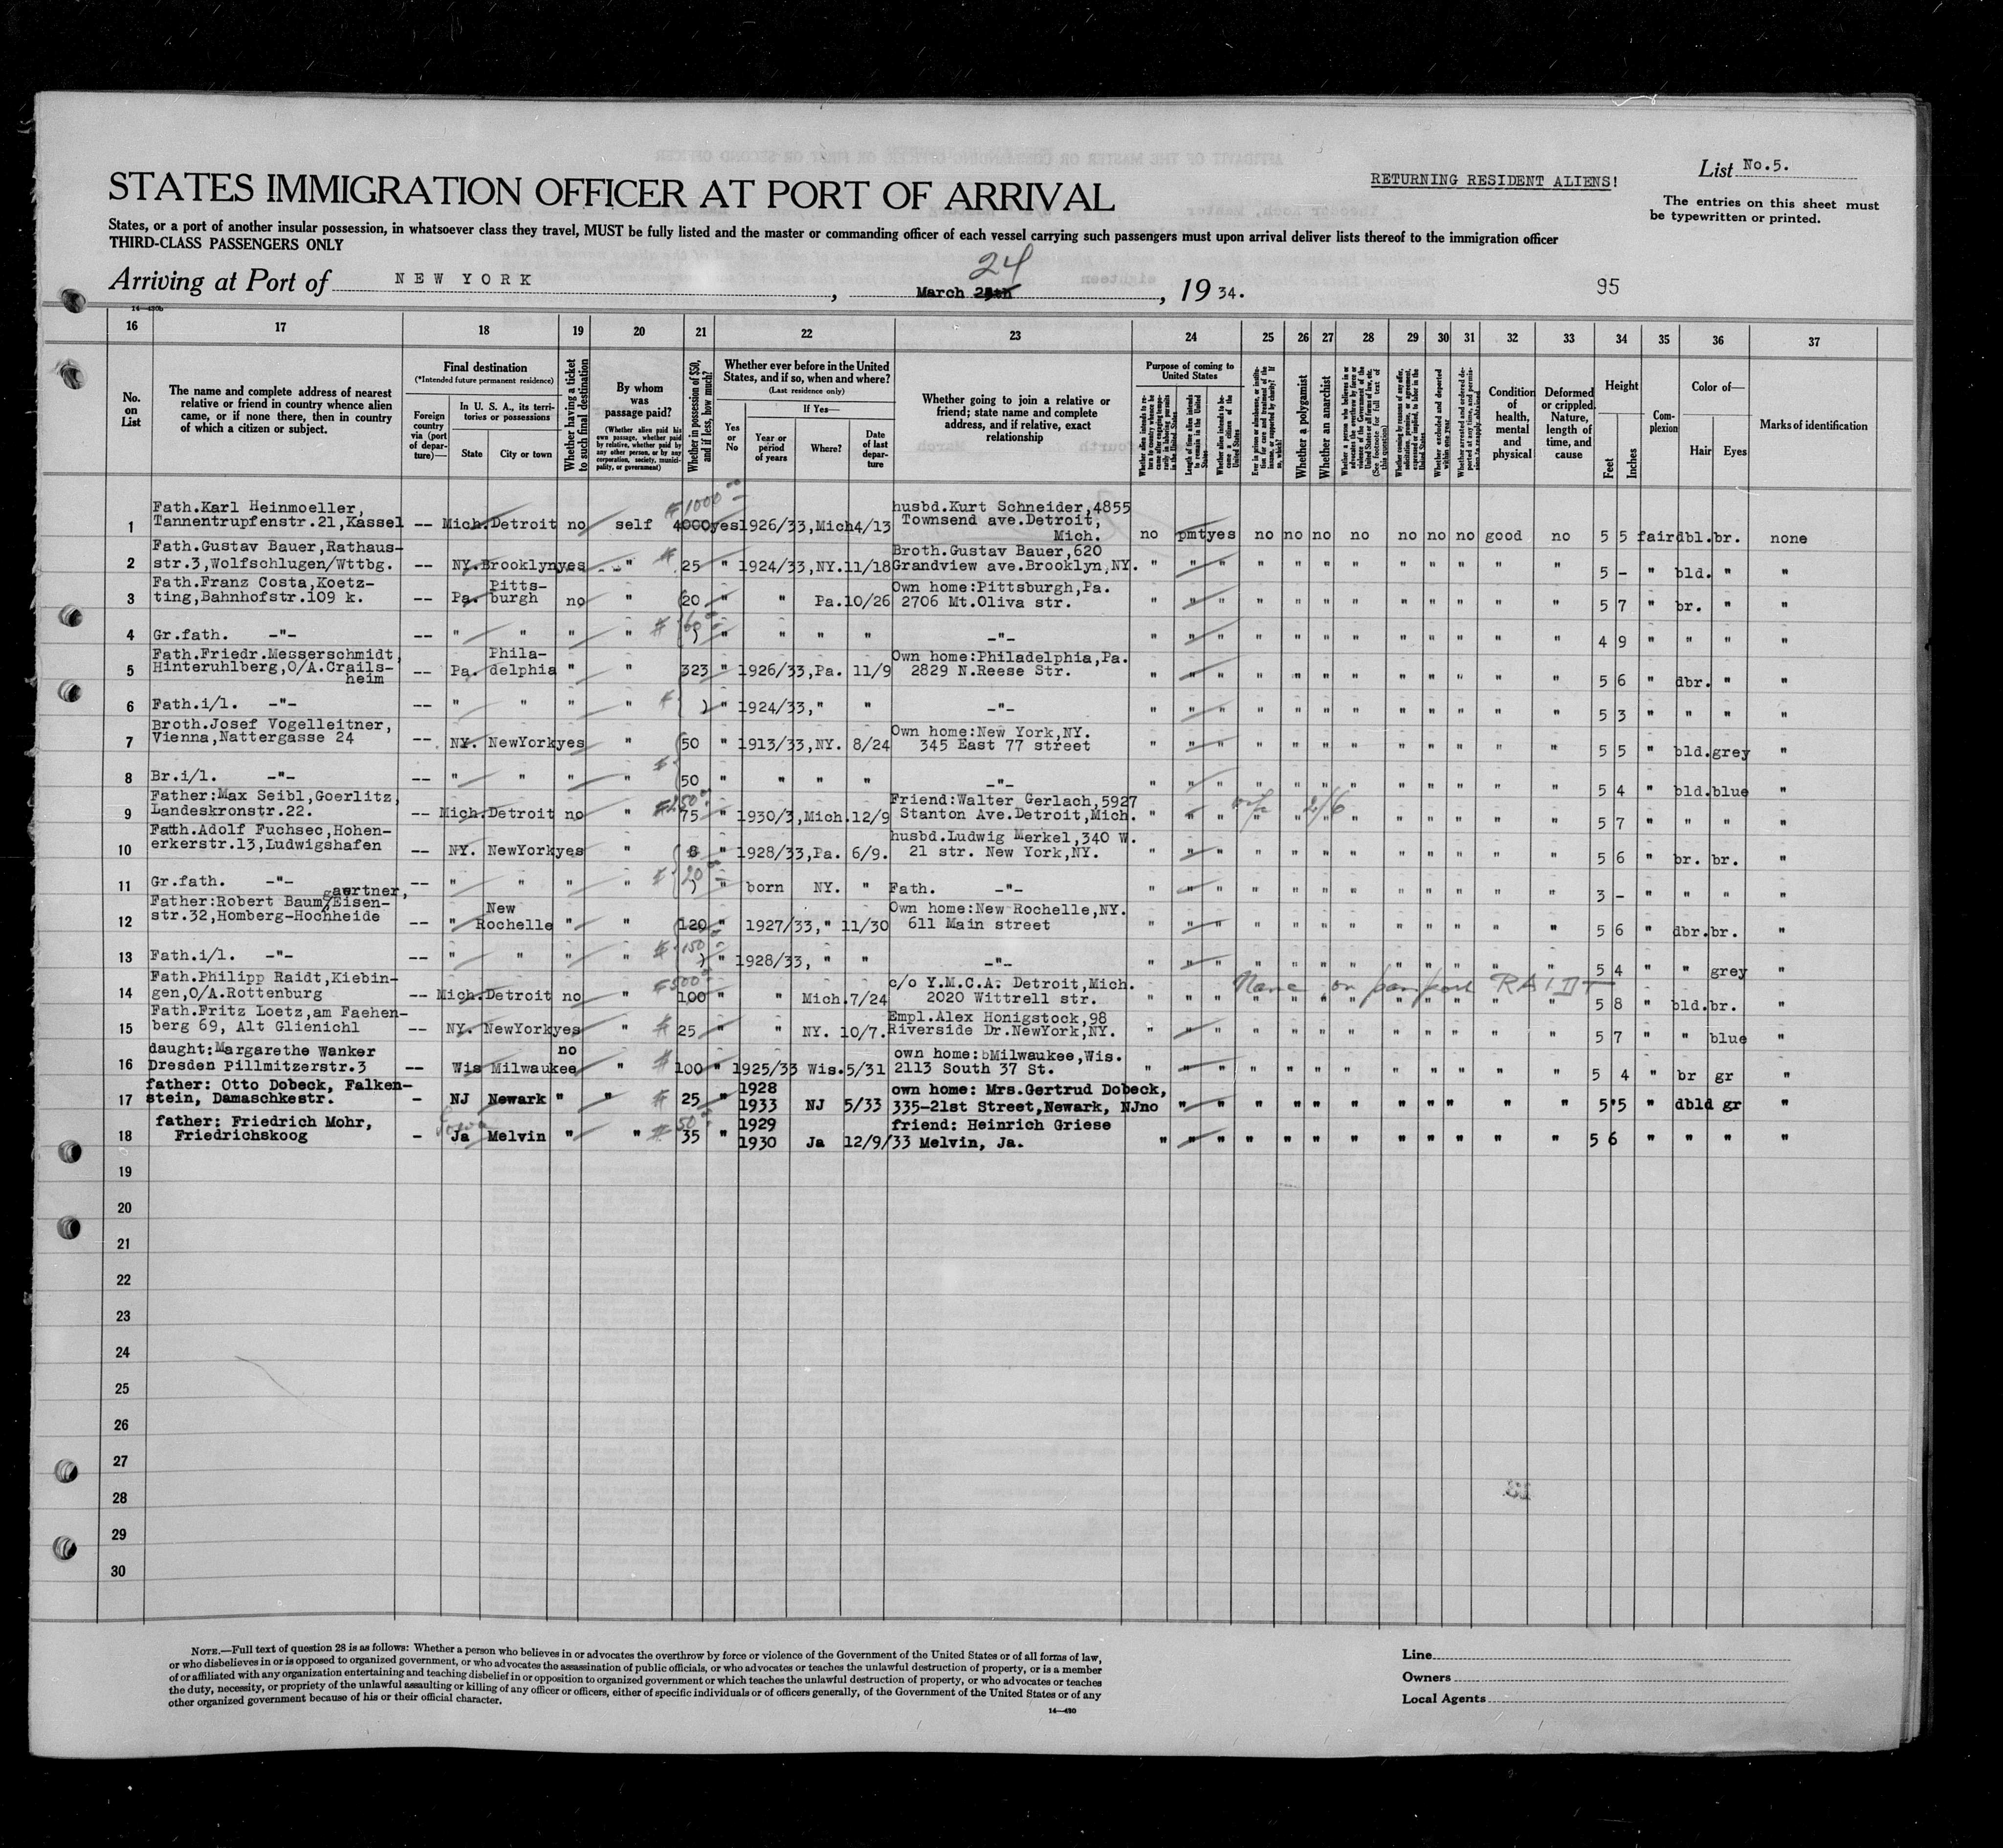 List No.5.
RETURNING RESIDENT ALIENS!
STATES IMMIGRATION OFFICER AT PORT OF ARRIVAL
The entries on this sheet must
be typewritten or printed.
States, or a port of another insular possession, in whatsoever class they travel, MUST be fully listed and the master or commanding officer of each vessel carrying such passengers must upon arrival deliver lists thereof to the immigration officer
THIRD-CLASS PASSENGERS ONLY
24
Arriving at Port of NEW YORK, March 24th, 19 34.
95
14—430b
16 17 18 19 20 21 22 23 24 25 26 27 28 29 30 31 32 33 34 35 36 37
No. on List
The name and complete address of nearest relative or friend in country whence alien came, or if none there, then in country of which a citizen or subject.
Final destination
(*Intended future permanent residence)
Foreign country via (port of departure)—
In U. S. A., its territories or possessions
State
City or town
Whether having a ticket to such final destination
By whom was passage paid?
(Whether alien paid his own passage, whether paid by relative, whether paid by any other person, or by any corporation, society, municipality, or government)
Whether in possession of $50, and if less, how much?
Whether ever before in the United States, and if so, when and where?
(Last residence only)
Yes or No
If Yes—
Year or period of years
Where?
Date of last departure
Whether going to join a relative or friend; state name and complete address, and if relative, exact relationship
Purpose of coming to United States
Length of time alien intends to remain in the United States
Whether alien intends to become a citizen of the United States
Whether a polygamist
Whether an anarchist
Whether excluded and deported within one year
Condition of health, mental and physical
Deformed or crippled. Nature, length of time, and cause
Height
Feet
Inches
Complexion
Color of—
Hair
Eyes
Marks of identification
$1000 00
1 Fath.Karl Heinmoeller, Tannentrupfenstr.21,Kassel -- Mich. Detroit no self 4000 yes 1926/33,Mich 4/13 husbd.Kurt Schneider,4855 Townsend ave.Detroit, Mich. no pmt yes no no no no no no no good no 5 5 fair dbl. br. none
2 Fath.Gustav Bauer,Rathausstr.3,Wolfschlugen/Wttbg. -- NY. Brooklyn yes " 25 " 1924/33,NY. 11/18 Broth.Gustav Bauer,620 Grandview ave.Brooklyn,NY. " " " " " " " " " " " " 5 - " bld. " "
3 Fath.Franz Costa,Koetzting,Bahnhofstr.109 k. -- Pa. Pittsburgh no " 20 " " Pa. 10/26 Own home:Pittsburgh,Pa. 2706 Mt.Oliva str. " " " " " " " " " " " " 5 7 " br. " "
$60
4 Gr.fath. -"- -- " " " " ) " " " " -"- " " " " " " " " " " " " 4 9 " " " "
5 Fath.Friedr.Messerschmidt, Hinteruhlberg,O/A.Crailsheim -- Pa. Philadelphia " " 323 " 1926/33,Pa. 11/9 Own home:Philadelphia,Pa. 2829 N.Reese Str. " " " " " " " " " " " " 5 6 " dbr. " "
6 Fath.i/l. -"- -- " " " " ) " 1924/33," " -"- " " " " " " " " " " " " 5 3 " " " "
7 Broth.Josef Vogelleitner, Vienna,Nattergasse 24 -- NY. NewYork yes " 50 " 1913/33,NY. 8/24 Own home:New York,NY. 345 East 77 street " " " " " " " " " " " " 5 5 " bld. grey "
8 Br.i/l. -"- -- " " " " 50 " " " " -"- " " " " " " " " " " " " 5 4 " bld. blue "
$250
9 Father:Max Seibl,Goerlitz, Landeskronstr.22. -- Mich. Detroit no " 75 " 1930/3,Mich. 12/9 Friend:Walter Gerlach,5927 Stanton Ave.Detroit,Mich. " " " " " " " " " " " " 5 7 " " " "
10 Fatth.Adolf Fuchsec,Hohenerkerstr.13,Ludwigshafen -- NY. NewYork yes " 8 " 1928/33,Pa. 6/9. husbd.Ludwig Merkel,340 W. 21 str. New York,NY. " " " " " " " " " " " " 5 6 " br. br. "
$20
11 Gr.fath. -"- -- " " " " ) " born NY. " Fath. -"- " " " " " " " " " " " " 3 - " " " "
12 Father:Robert Baumgaertner,Eisenstr.32,Homberg-Hochheide -- " New Rochelle " " 120 " 1927/33," 11/30 Own home:New Rochelle,NY. 611 Main street " " " " " " " " " " " " 5 6 " dbr. br. "
$150
13 Fath.i/l. -"- -- " " " " ) " 1928/33, " " -"- " " " " " " " " " " " " 5 4 " " grey "
$500
14 Fath.Philipp Raidt,Kiebingen,O/A.Rottenburg -- Mich. Detroit no " 100 " " Mich. 7/24 c/o Y.M.C.A. Detroit,Mich. 2020 Wittrell str. " " " " " " " " " " " " 5 8 " bld. br. "
Name on passport RAIDT
15 Fath.Fritz Loetz,am Faehenberg 69, Alt Glienichl -- NY. NewYork yes " 25 " " NY. 10/7. Empl.Alex Honigstock,98 Riverside Dr.NewYork,NY. " " " " " " " " " " " " 5 7 " " blue "
16 daught:Margarethe Wanker Dresden Pillmitzerstr.3 -- Wis Milwaukee no " 100 " 1925/33 Wis. 5/31 own home: Milwaukee,Wis. 2113 South 37 St. " " " " " " " " " " " " 5 4 " br gr "
17 father: Otto Dobeck, Falkenstein, Damaschkestr. - NJ Newark " " 25 " 1928 1933 NJ 5/33 own home: Mrs.Gertrud Dobeck, 335-21st Street,Newark, NJ no " " " " " " " " " " " 5 5 " dbld gr "
Iowa
50
18 father: Friedrich Mohr, Friedrichskoog - Ja Melvin " " 35 " 1929 1930 Ja 12/9/33 friend: Heinrich Griese Melvin, Ja. " " " " " " " " " " " " 5 6 " " " "
19
20
21
22
23
24
25
26
27
28
29
30
NOTE.—Full text of question 28 is as follows: Whether a person who believes in or advocates the overthrow by force or violence of the Government of the United States or of all forms of law,
or who disbelieves in or is opposed to organized government, or who advocates the assassination of public officials, or who advocates or teaches the unlawful destruction of property, or is a member
of or affiliated with any organization entertaining and teaching disbelief in or opposition to organized government or which teaches the unlawful destruction of property, or who advocates or teaches
the duty, necessity, or propriety of the unlawful assaulting or killing of any officer or officers, either of specific individuals or of officers generally, of the Government of the United States or of any
other organized government because of his or their official character.
14—430
Line
Owners
Local Agents